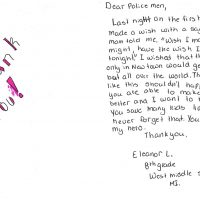 ank
you!
Dear Police men,
Last night on the first
made a wish with a
man told me, "Wish I may
might, have the wish I
tonight" I wished that the
only in Newtown would get
but all our the world. Th
like this shouldn't happ
you are able to make
better and I want to
You save many kids li
never forget that. You
my hero.
Thank you,
Eleanor L.
8th grade
West middle s
MI.